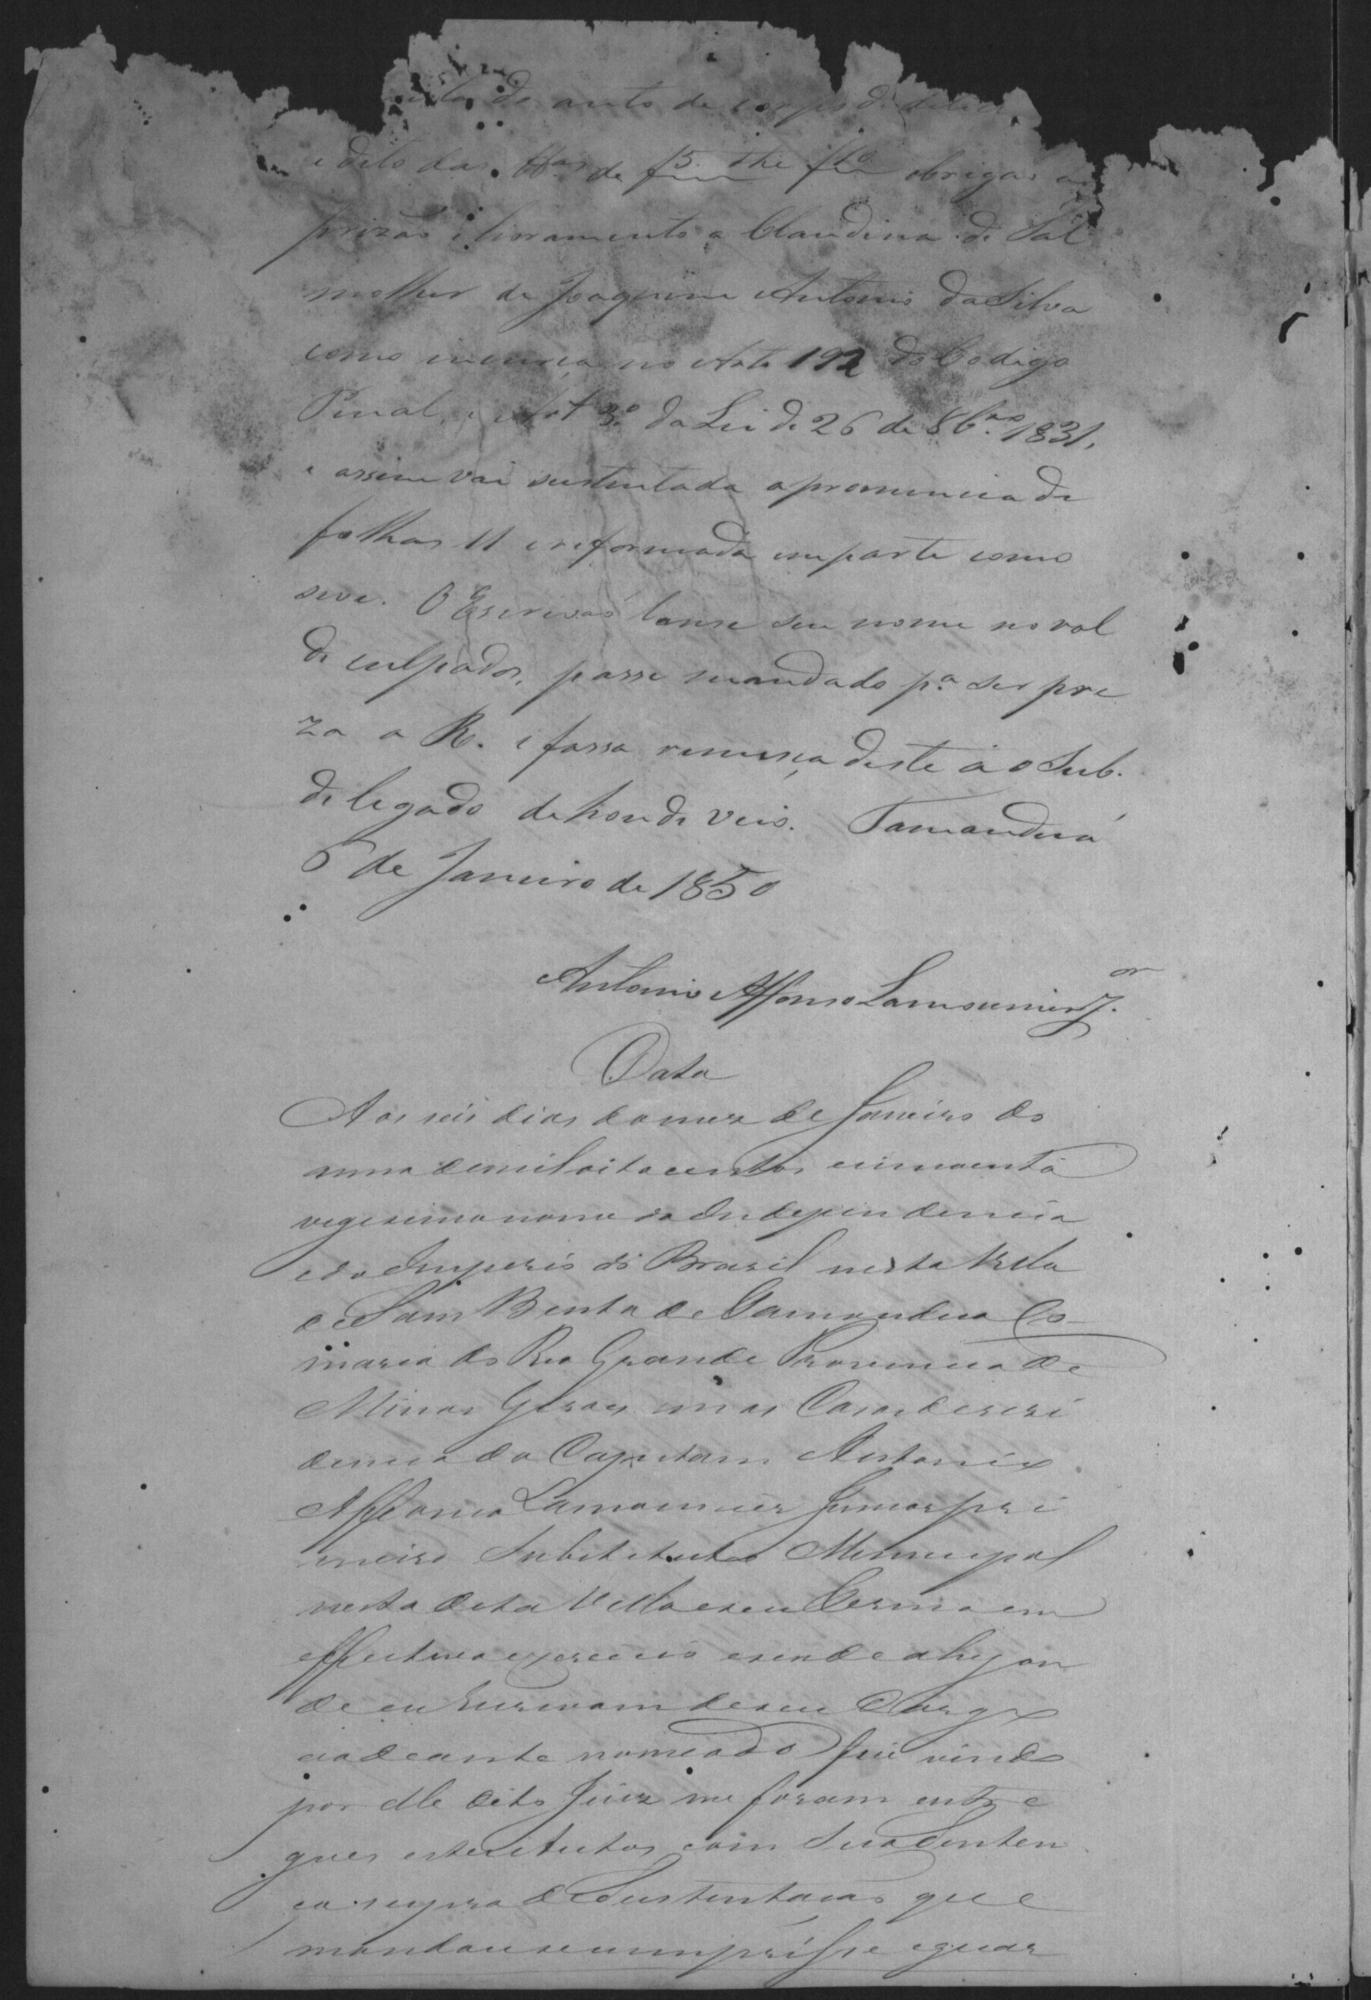 do auto de corpo de delicto
e dito das
prizão e livramento a Claudina de Tal
molher de Joaquim Antonio da Silva
como incursa no Arto 192 do Codigo
Penal, e Art 3º da Lei de 26 de 8bro 1831,
e assim vai sustentada a pronuncia de
folhas 11 e reformada em parte como
seve. O Escrivaõ lanse seu nome no rol
de culpados, passe mandado pª ser pre
za a R. e fassa remessa deste áo Sub.
delegado de honde veio. Tamanduá
6 de Janeiro de 1850
Antonio Affonso Lamounier Jor
Data
Aos seis dias do mez de Janeiro do
anno de mil oito centos cincoenta
vigesimo nono da Independencia
e do Imperio do Brasil nesta Villa
de Sam Bento de Tamandua Co
marca do Rio Grande Provincia de
Minas Geraes em as Casas de rezi
dencia do Capitam Antonio
Affonso Lamounier Junior pri
meiro Substituto Municipal
nesta dita Villa e seu Termo em
effectivo exercicio e sendo ahy on
de eu Escrivam de seu Cargo
ao deante nomeado fui vindo
por elle dito Juiz me foram entre
gues estes Autos com sua Senten
ca supra de Sustentacaõ que
mandou se cumprisse e guar